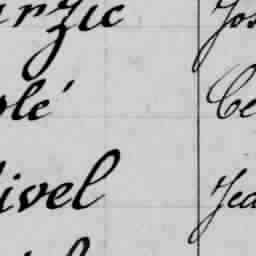 rzic Jos
olé Ce
ivel Jea